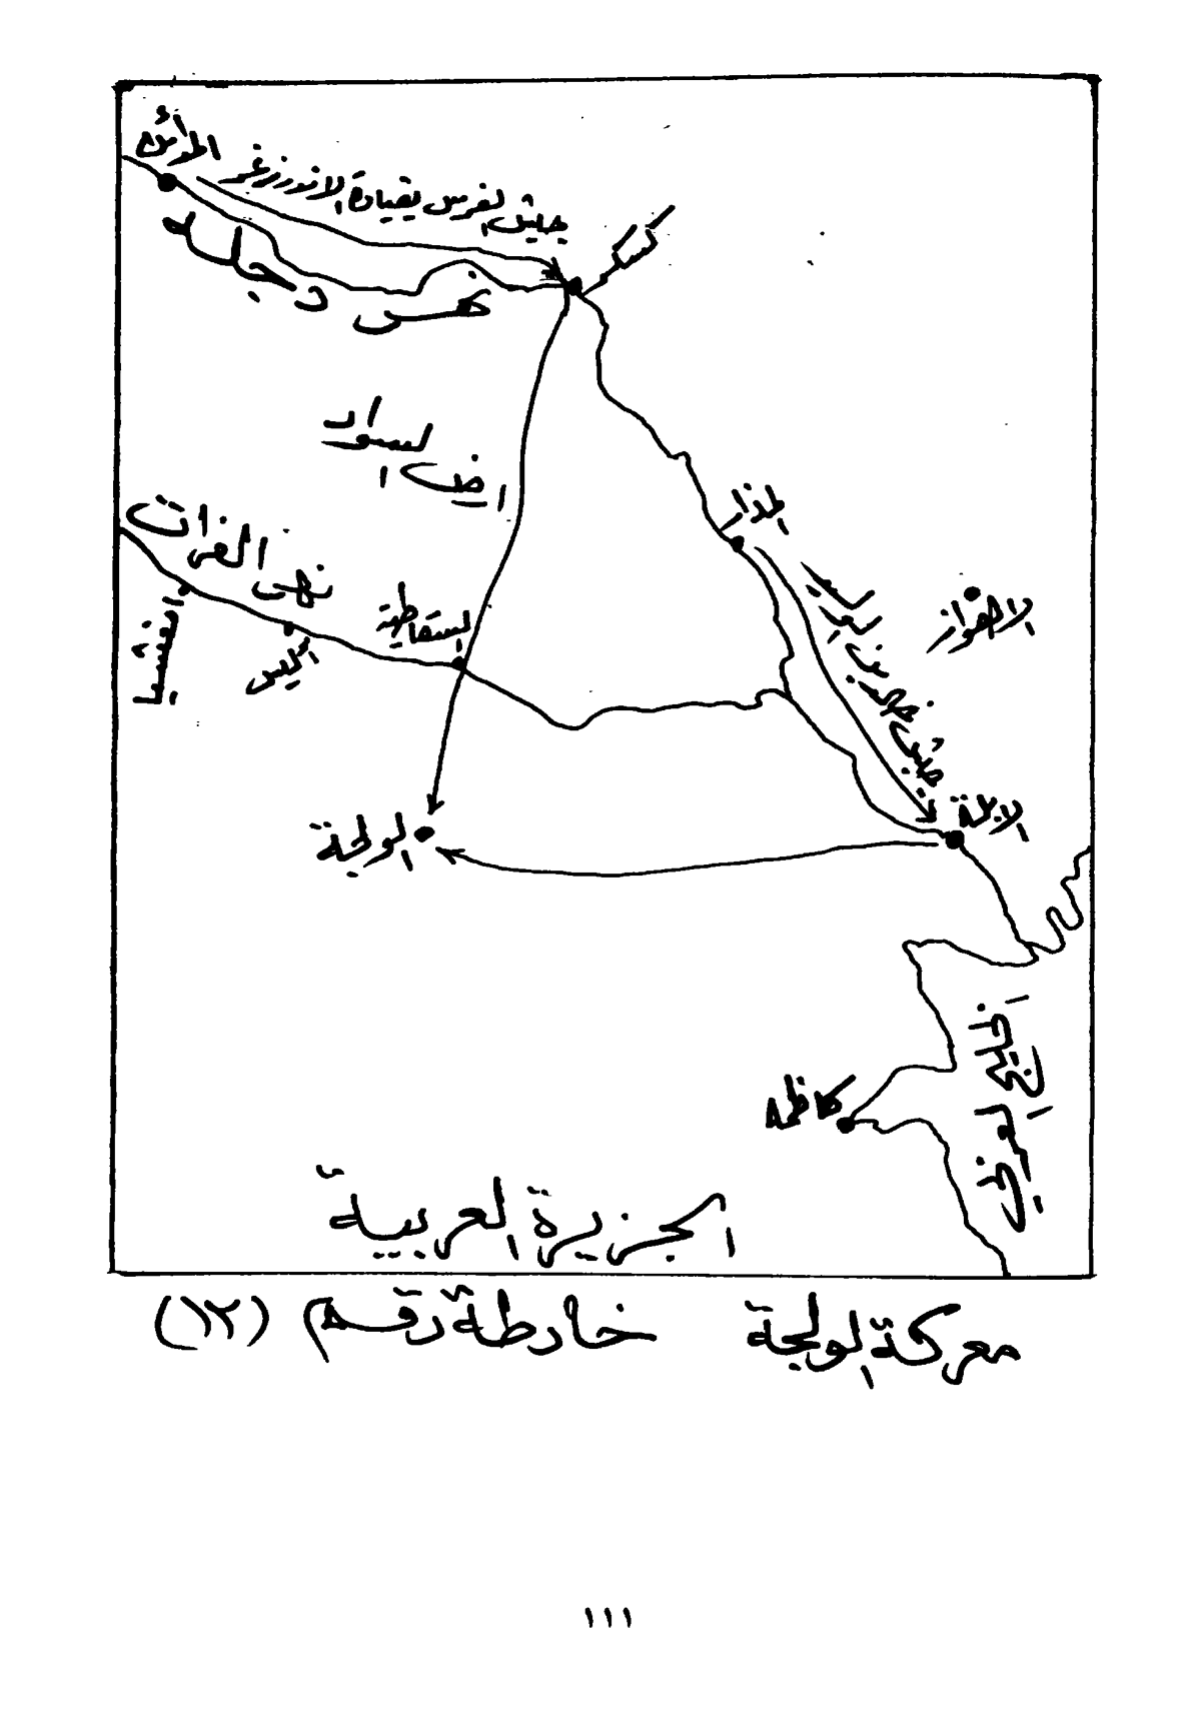 المدائن
جيش الفرس بقيادة الاندرزغر
كسكر
نهر دجلة
ارض السواد
المذار
نهر الفرات
السقاطية
اليس
امغيشيا
الاهواز
جيش خالد بن الوليد
الابلة
الولجة
الخليج العربي
كاظمة
الجزيرة العربية
معركة الولجة خارطة رقم (١٢)
١١١